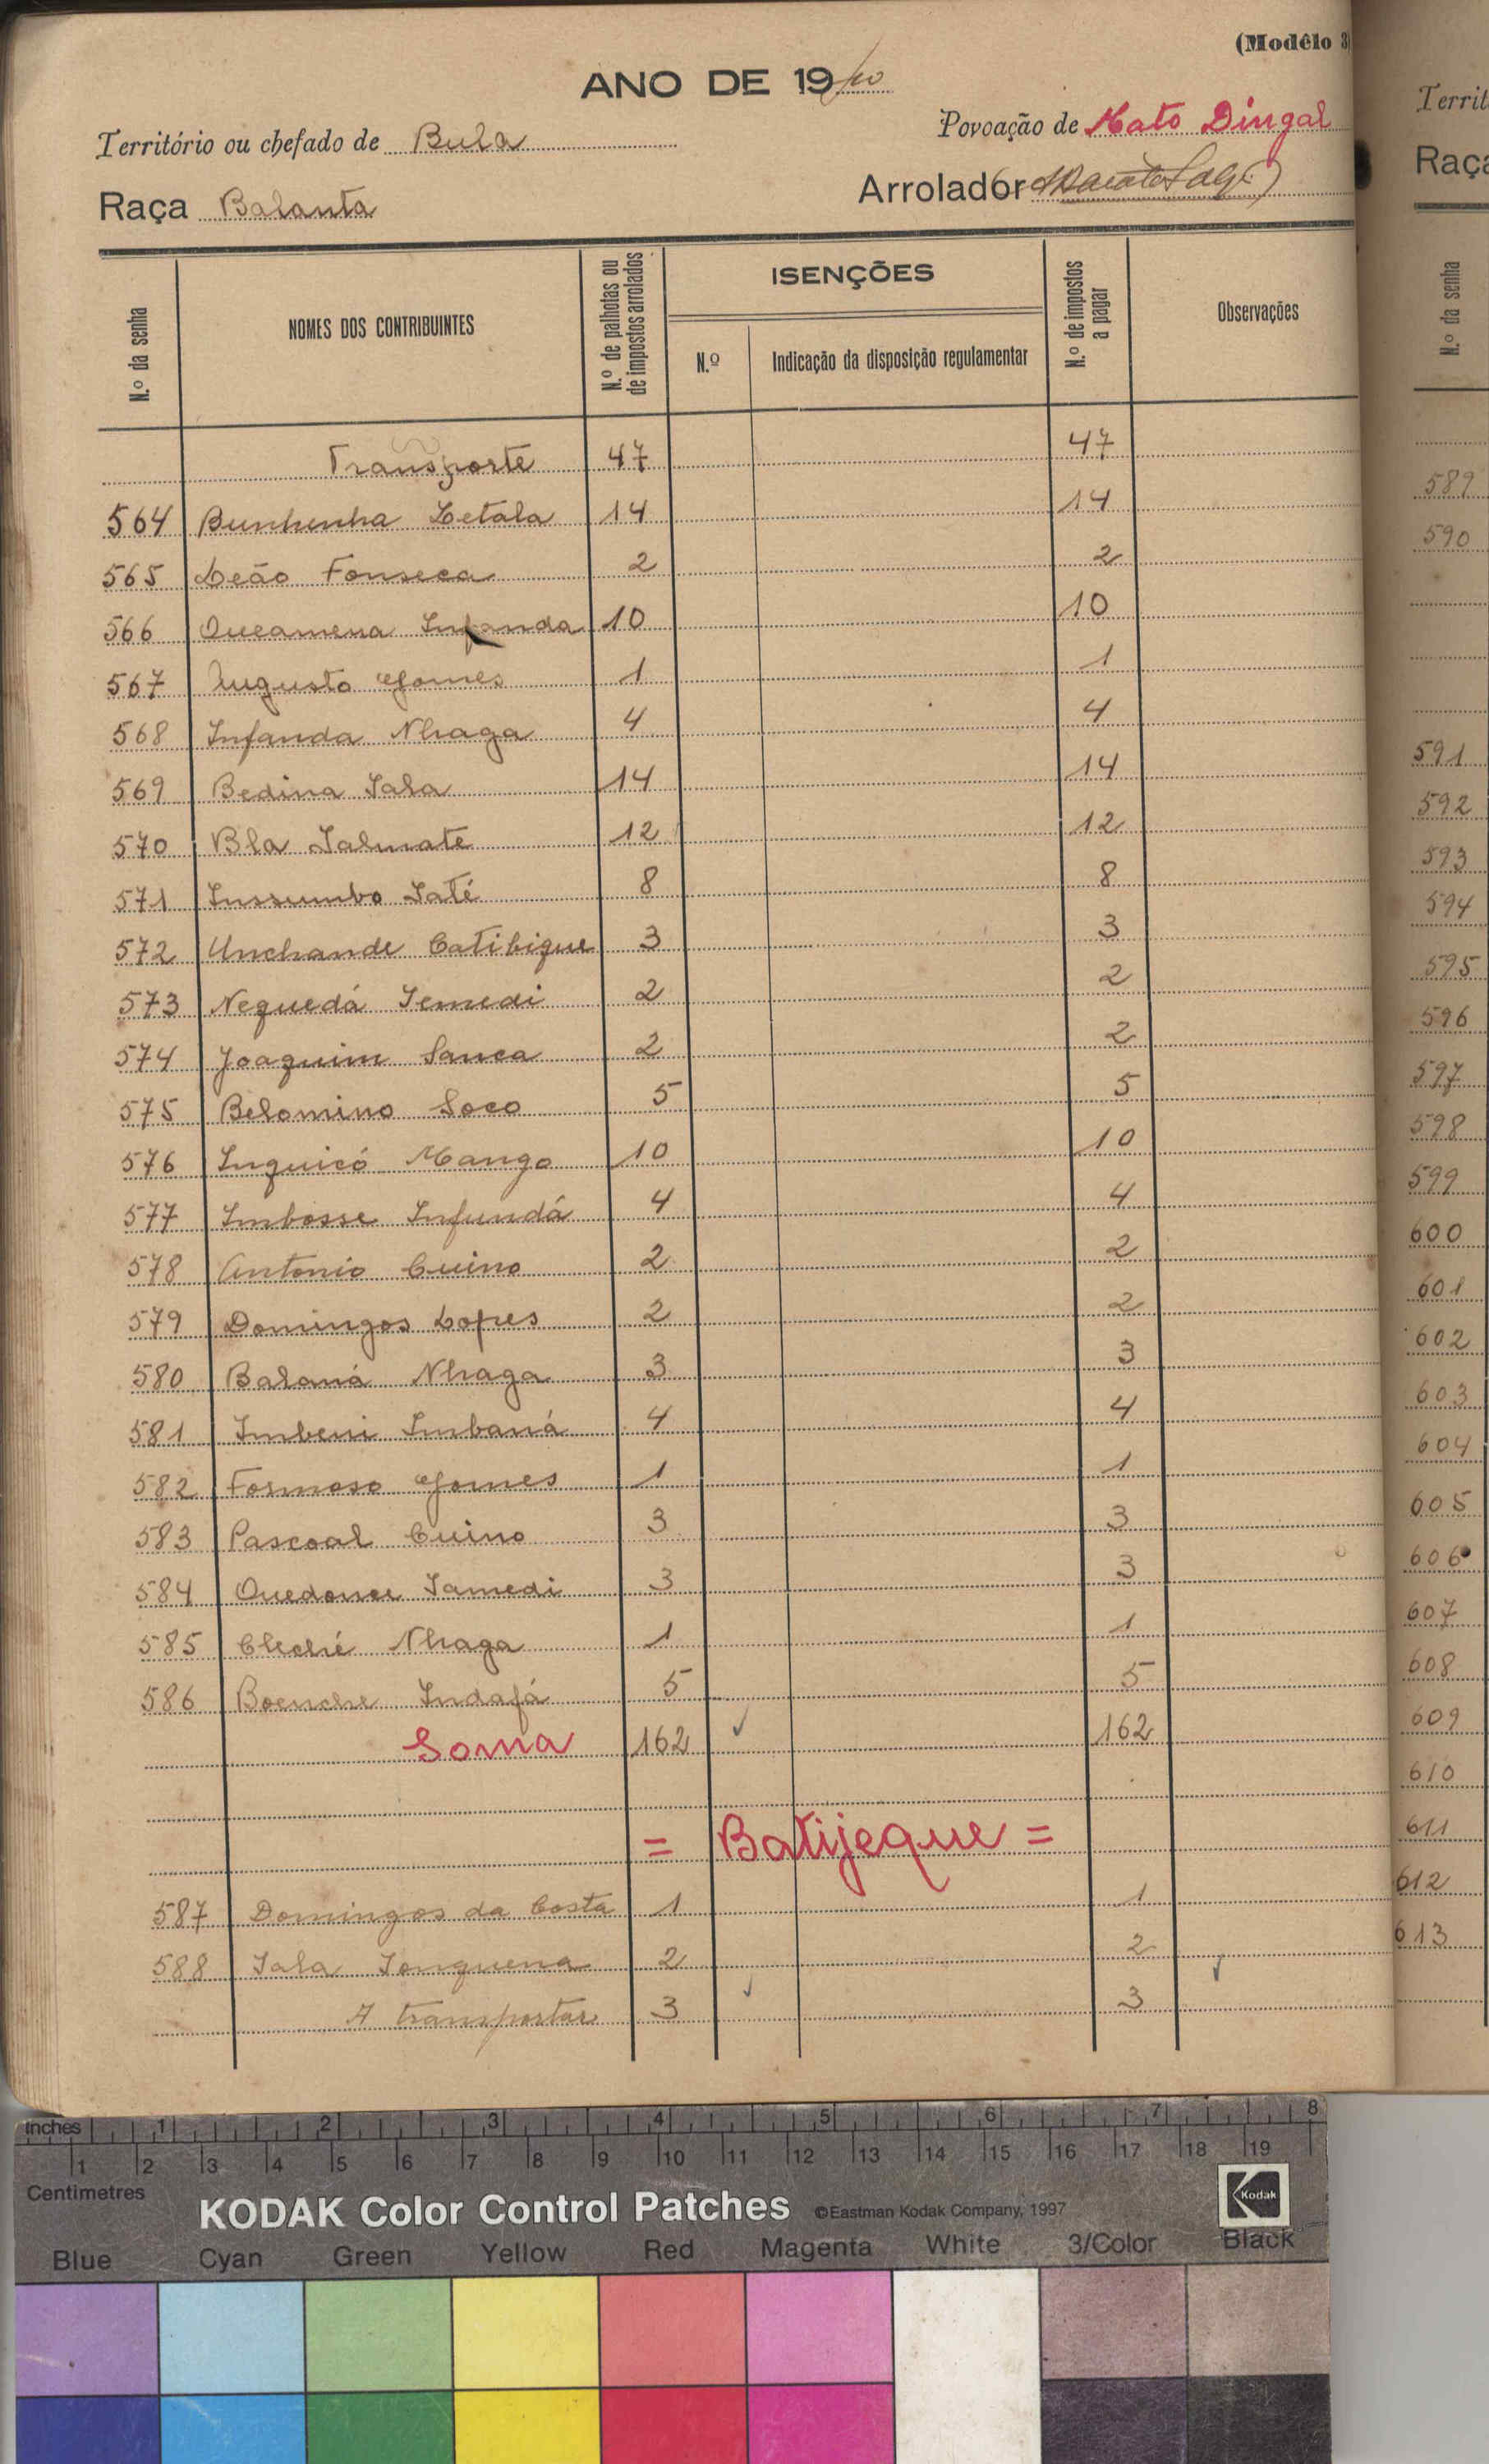 (Modêlo 3
ANO DE 19
Território ou chefado de Bula
Povoação de Mato Dingal
Raça Balanta
Arrolador
N.º da senha
NOMES DOS CONTRIBUINTES
N.º de palhotas ou de impostos arrolados
ISENÇÕES
N.º
Indicação da disposição regulamentar
N.º de impostos a pagar
Observações
Transporte 47 47
564 Bunhenha Letala 14 14
565 Leão Fonseca 2 2
566 Infanda 10 10
567 Augusto Gomes 1 1
568 Infanda Nhaga 4 4
569 Bedina Sala 14 14
570 Bla Salmate 12 12
571 Inssumbo Saté 8 8
572 Unchande Catibique 3 3
573 Neguedá Semedi 2 2
574 Joaquim Sanca 2 2
575 Belomino Soco 5 5
576 Inquicó Mango 10 10
577 Imbosse Infundá 4 4
578 Antonio Cuino 2 2
579 Domingos Lopes 2 2
580 Balaná Nhaga 3 3
581 Imbeni Imbaná 4 4
582 Formoso Gomes 1 1
583 Pascoal Cuino 3 3
584 Samedi 3 3
585 Cleché Nhaga 1 1
586 Boenche Indafá 5 5
Soma 162 162
= Batijeque =
587 Domingos da Costa 1 1
588 Sala Tonguena 2 2
A transportar 3 3
Territ
Raça
N.º da senha
589
590
591
592
593
594
595
596
597
598
599
600
601
602
603
604
605
606
607
608
609
610
611
612
613
Inches 1 2 3 4 5 6 7 8
1 2 3 4 5 6 7 8 9 10 11 12 13 14 15 16 17 18 19
Centimetres
KODAK Color Control Patches ©Eastman Kodak Company, 1997 Kodak
Blue Cyan Green Yellow Red Magenta White 3/Color Black